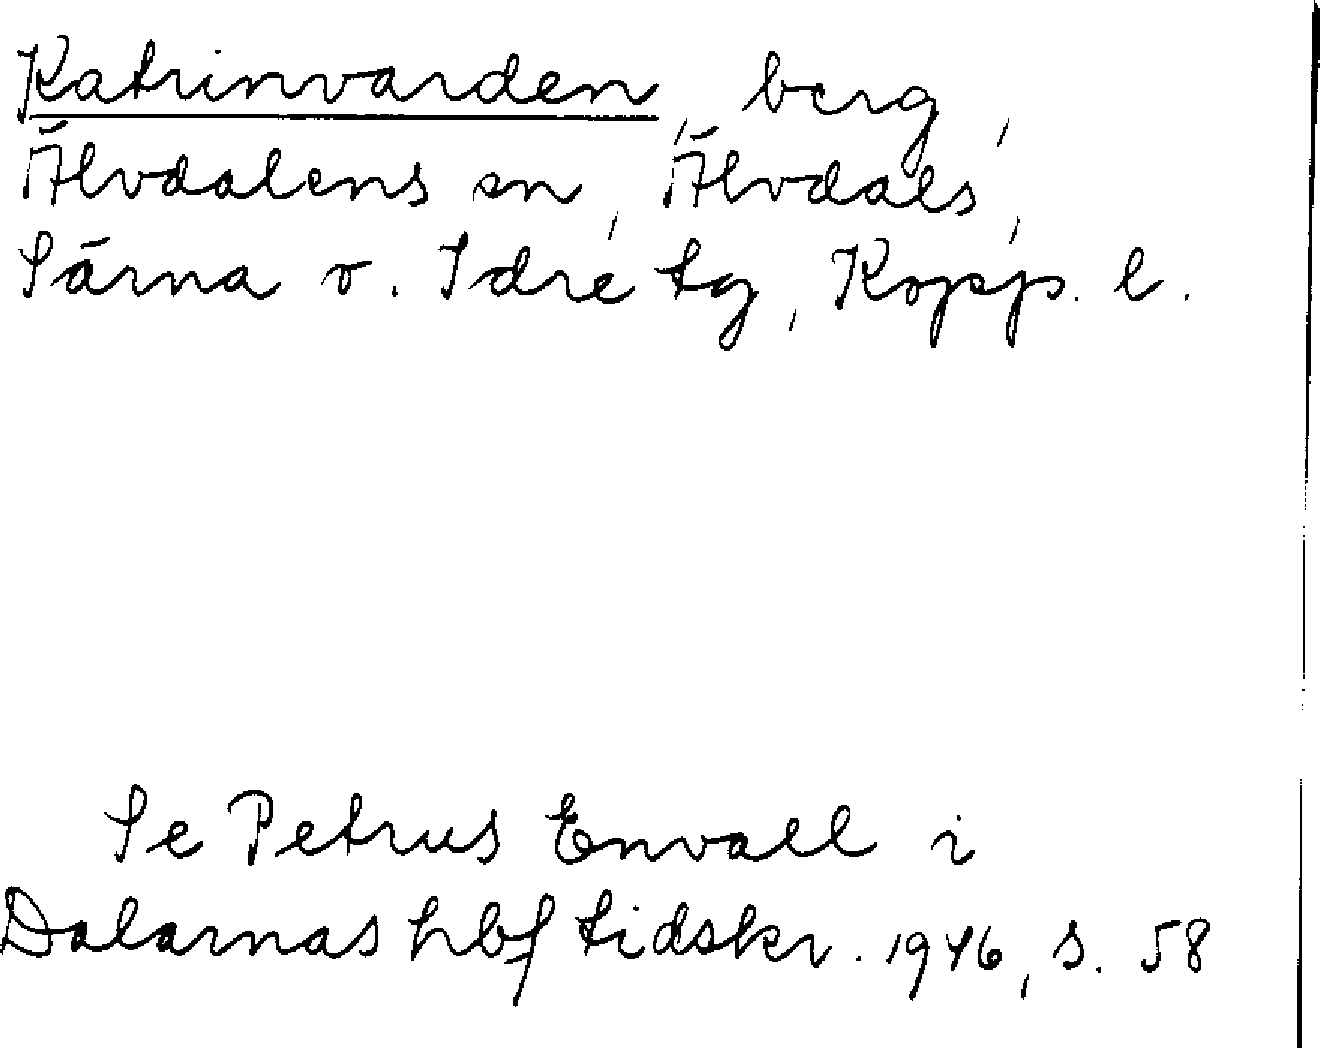 Katrinvarden, berg,
Älvdalens sn, Älvdals,
Särna o. Idre tg, Kopp. l.
Se Petrus Envall i
Dalarnas hbf tidskr. 1946, s. 58